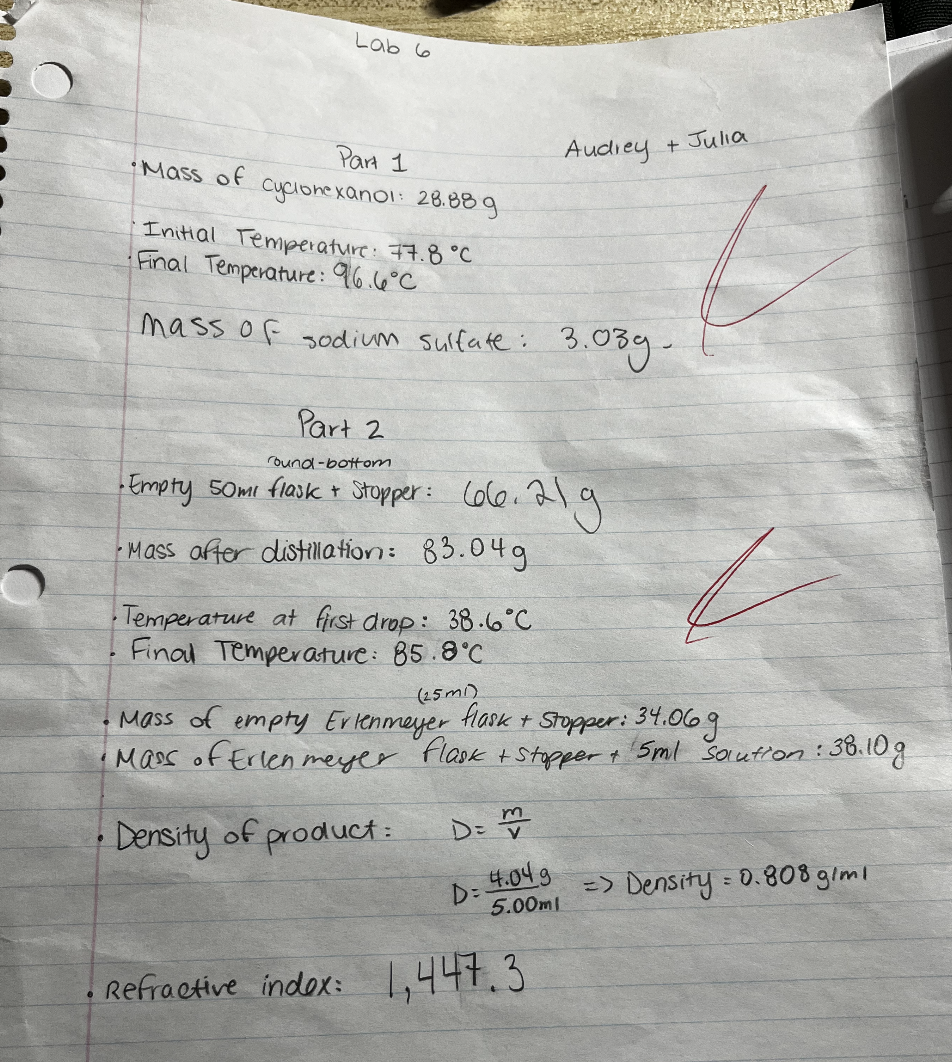 Lab 6
Audrey + Julia
Part 1
• Mass of cyclohexanol: 28.88 g
• Initial Temperature: 77.8 °C
• Final Temperature: 96.6 °C
Mass of sodium sulfate: 3.03g -
Part 2
round-bottom
• Empty 50ml flask + Stopper: 66.21g
• Mass after distillation: 83.04g
• Temperature at first drop: 38.6°C
• Final Temperature: 85.8°C
(25ml)
• Mass of empty Erlenmeyer flask + stopper: 34.06 g
• Mass of Erlenmeyer flask + stopper + 5ml solution: 38.10g
• Density of product: D = m/v
D = 4.04g/5.00ml => Density = 0.808 g/ml
• Refractive index: 1,447.3